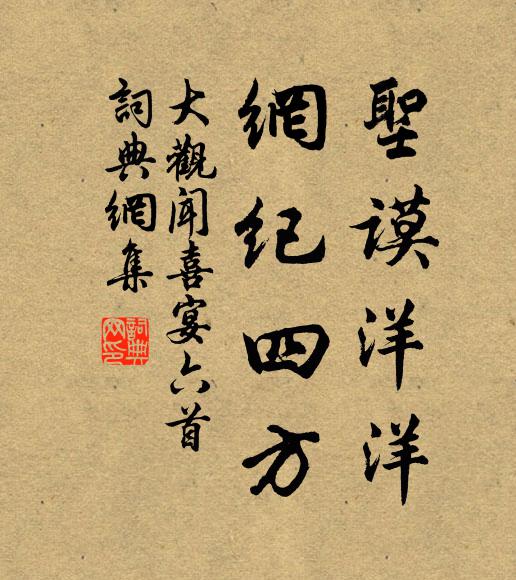 聖謨洋洋
網紀四方
大觀聞喜宴六首
詞典網集
詞典網印